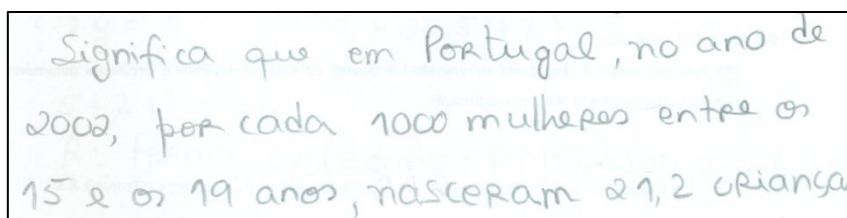 Significa que em Portugal, no ano de
2002, por cada 1000 mulheres entre os
15 e os 19 anos, nasceram 21,2 criança